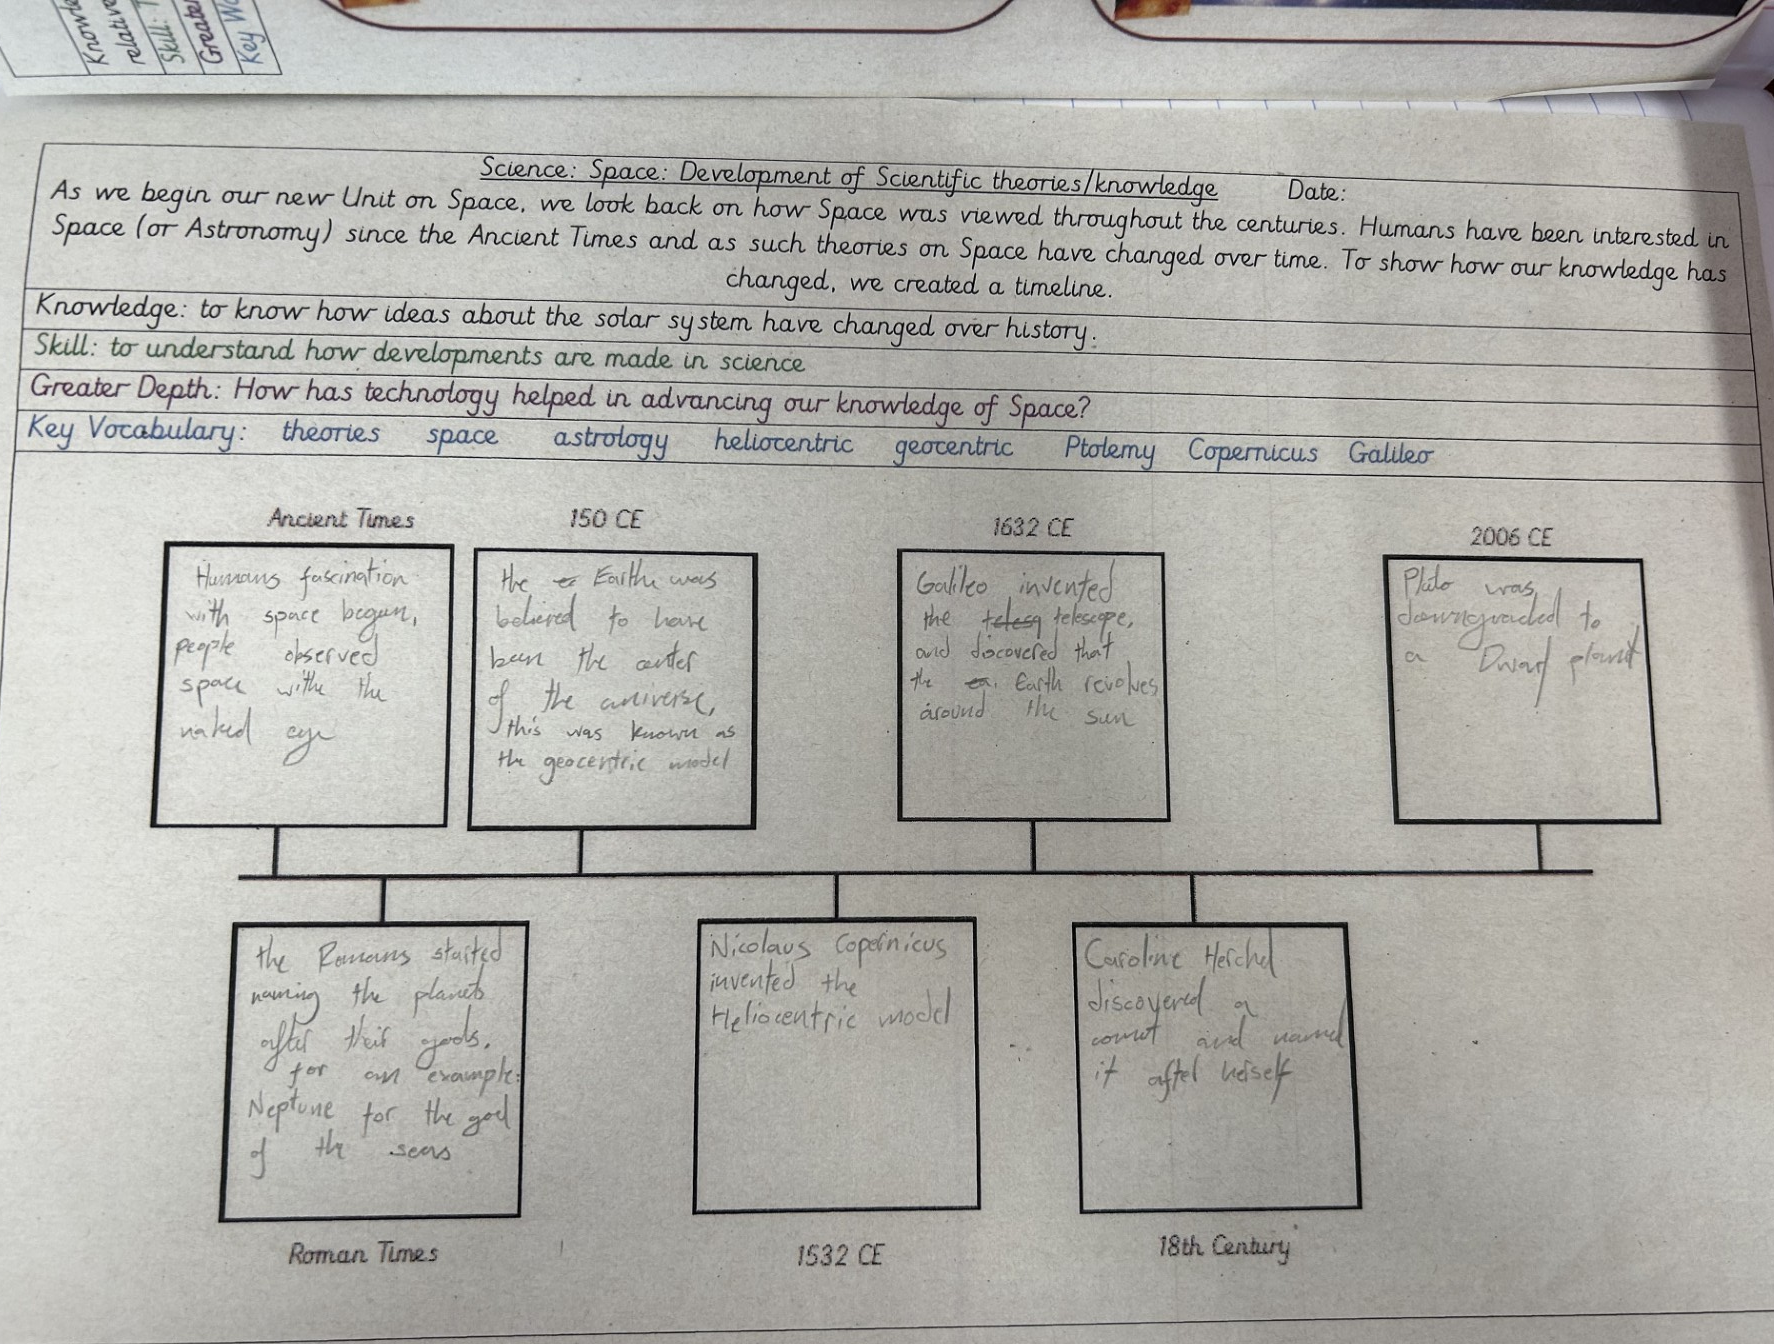 Science: Space: Development of Scientific theories/knowledge Date:
As we begin our new Unit on Space, we look back on how Space was viewed throughout the centuries. Humans have been interested in
Space (or Astronomy) since the Ancient Times and as such theories on Space have changed over time. To show how our knowledge has
changed, we created a timeline.
Knowledge: to know how ideas about the solar system have changed over history.
Skill: to understand how developments are made in science
Greater Depth: How has technology helped in advancing our knowledge of Space?
Key Vocabulary: theories space astrology heliocentric geocentric Ptolemy Copernicus Galileo
Ancient Times
Humans fascination
with space begun,
people observed
space withe the
naked eye
150 CE
the Earthe was
believed to have
been the center
of the universe,
this was known as
the geocentric model
1632 CE
Galileo invented
the telesq telescope,
and discovered that
the ea. Earth revolves
around the sun
2006 CE
Pluto was
downgraded to
a Dwarf planet
the Romans started
naming the planets
after their gods.
for an example:
Neptune for the god
of the seas
Roman Times
Nicolaus Copernicus
invented the
Heliocentric model
1532 CE
Caroline Herchel
discovered a
comet and named
it after herself
18th Century
Knowle
relative
Skill: T
Greate
Key Wo